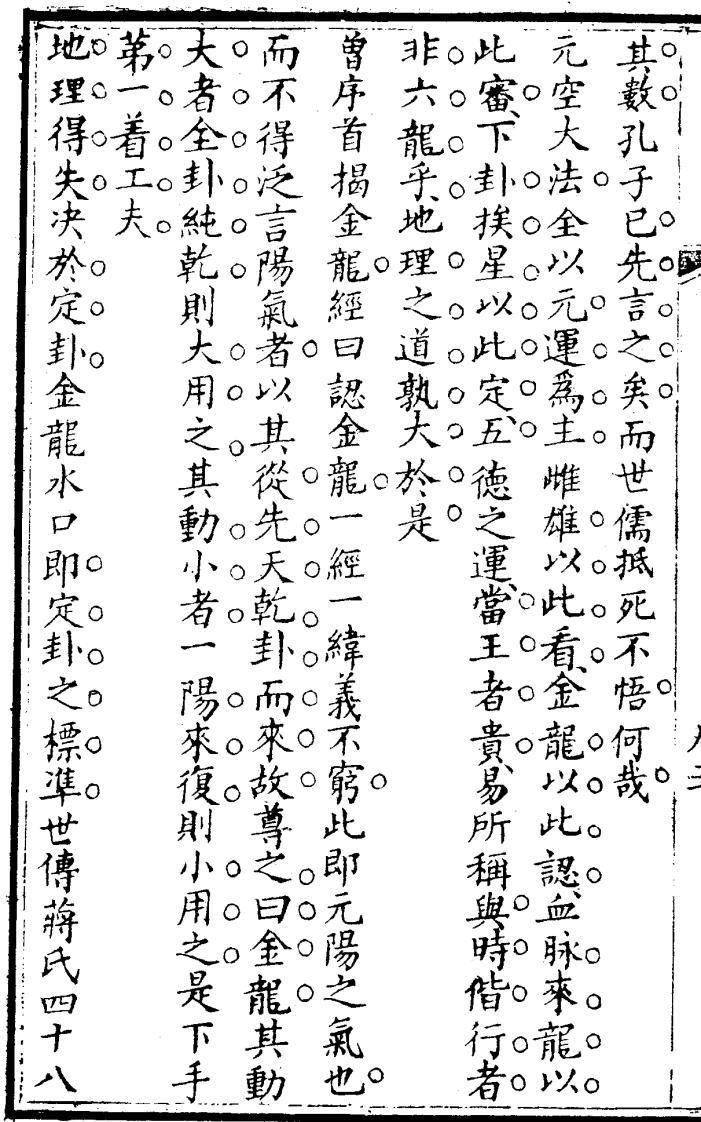 其數孔子已先言之矣而世儒抵死不悟何哉
元空大法全以元運爲主雌雄以此看金龍以此認血脉來龍以
此審下卦挨星以此定五德之運當王者貴易所稱與時偕行者
非六龍乎地理之道孰大於是
曾序首揭金龍經曰認金龍一經一緯義不窮此即元陽之氣也
而不得泛言陽氣者以其從先天乾卦而來故尊之曰金龍其動
大者全卦純乾則大用之其動小者一陽來復則小用之是下手
第一着工夫
地理得失决於定卦金龍水口即定卦之標準世傳蔣氏四十八